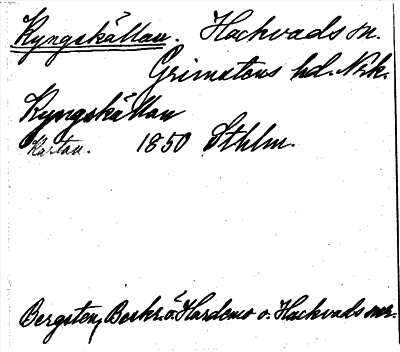 Kyngskällan. Hackvads sn.
Grimstens hd. Nrk.
Kyngskällan
Kartan. 1850 Sthlm.
Bergsten, Beskr. ö. Hardemo o. Hackvads snr.